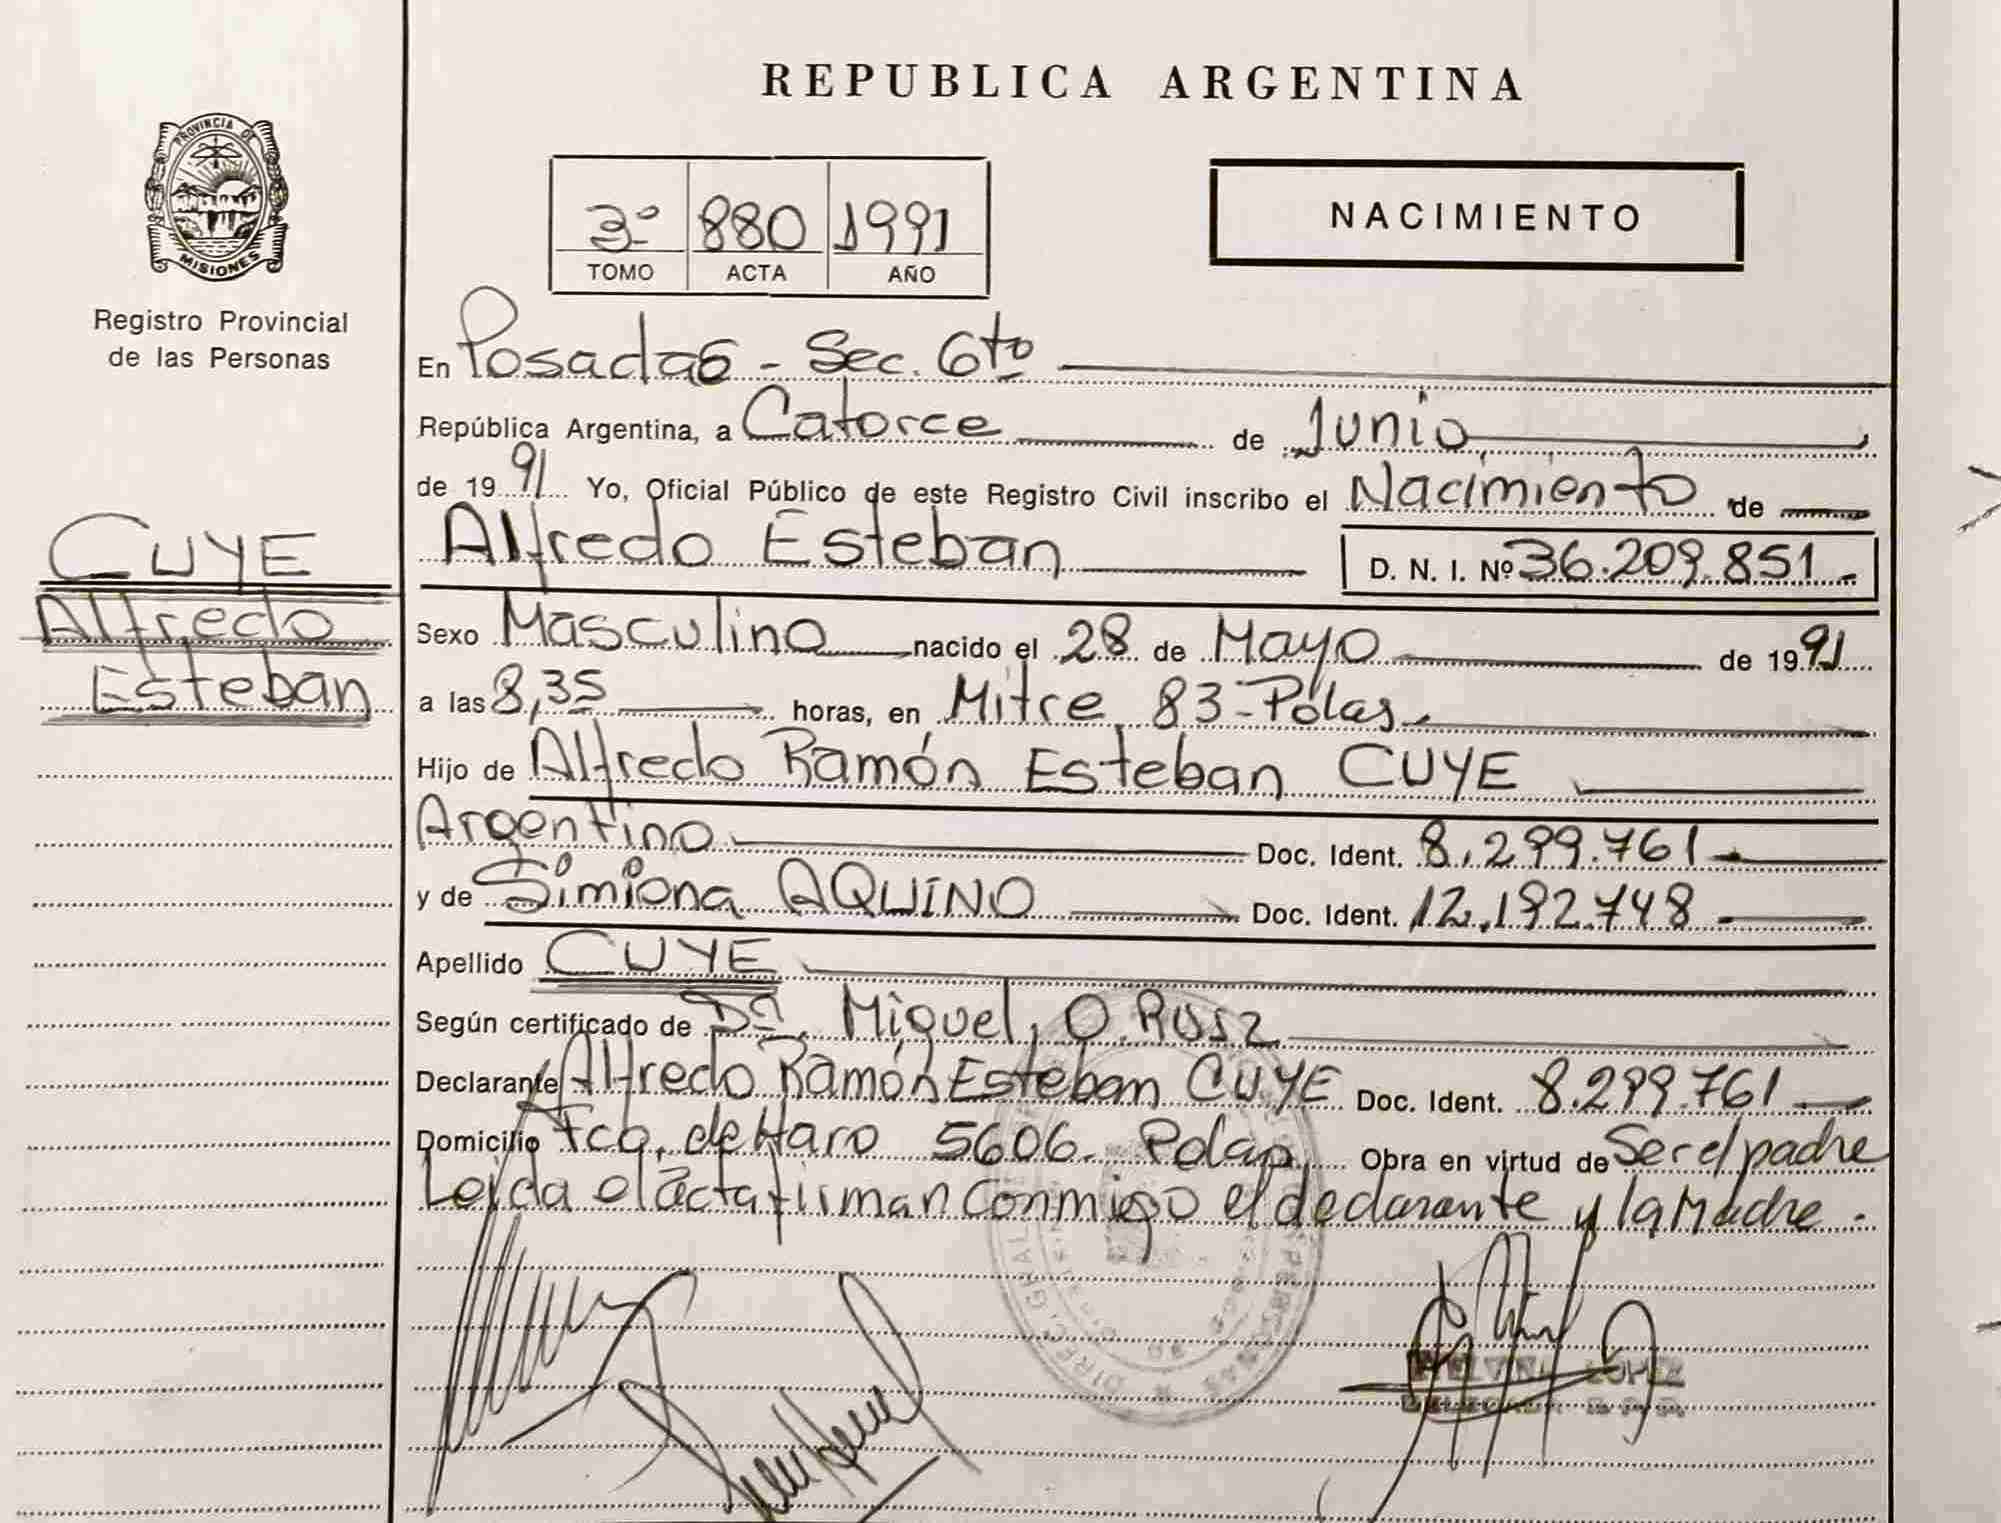 REPUBLICA ARGENTINA
PROVINCIA DE
MISIONES
Registro Provincial
de las Personas
3º 880 1991
TOMO ACTA AÑO
NACIMIENTO
En Posadas - Sec. 6to
República Argentina, a Catorce de Junio
de 19 91 Yo, Oficial Público de este Registro Civil inscribo el Nacimiento de
CUYE
Alfredo
Esteban
Alfredo Esteban D. N. I. Nº 36.209.851.-
Sexo Masculino nacido el 28 de Mayo de 19 91
a las 8,35 horas, en Mitre 83-Pdas.
Hijo de Alfredo Ramón Esteban CUYE
Argentino Doc. Ident. 8.299.761
y de Simiona AQUINO Doc. Ident. 12.192.748
Apellido CUYE
Según certificado de Miguel O.
Declarante Alfredo Ramón Esteban CUYE Doc. Ident. 8.299.761
Domicilio Fco. de Haro 5606. Pdas. Obra en virtud de Ser el padre
Leida el acta firman conmigo el declarante y la Madre.
LOPEZ